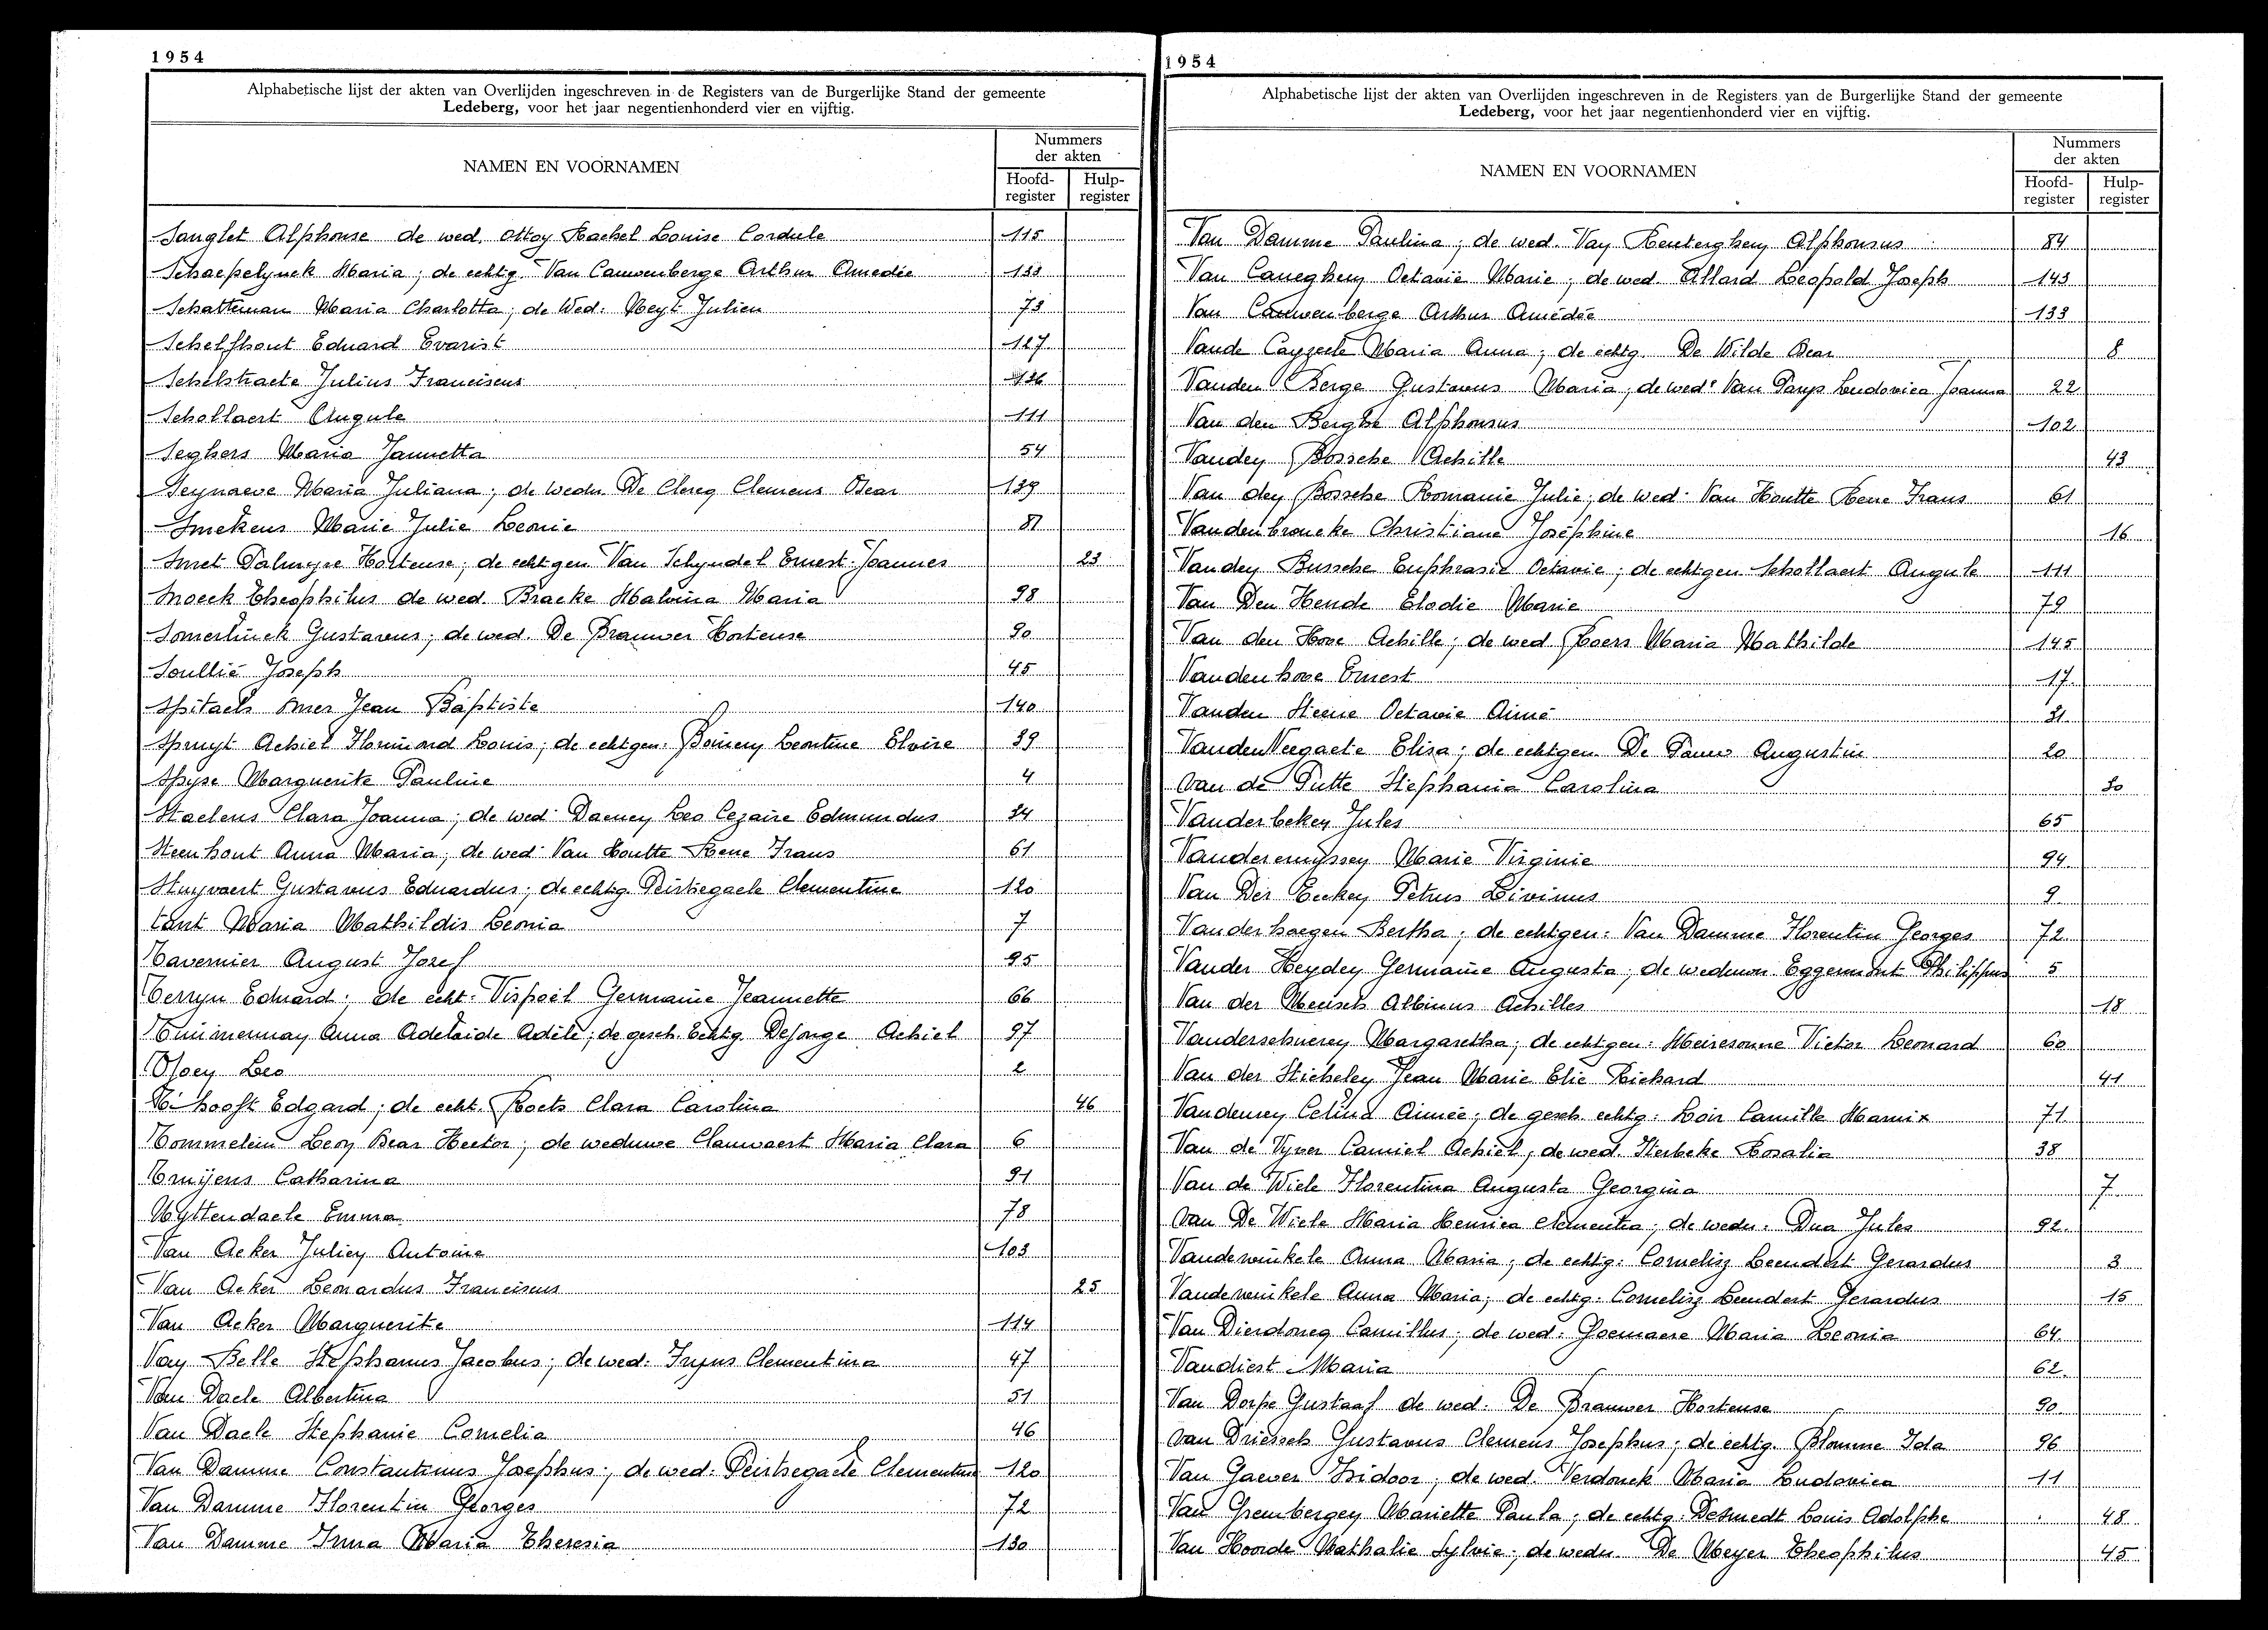 1954
Alphabetische lijst der akten van Overlijden ingeschreven in de Registers van de Burgerlijke Stand der gemeente
Ledeberg, voor het jaar negentienhonderd vier en vijftig.
NAMEN EN VOORNAMEN
Nummers
der akten
Hoofd-
register
Hulp-
register
Sanglet Alphonse de wed. Ottoy Rachel Louise Cordule 115
Schaepelynck Maria; de echtg. Van Cauwenberge Arthur Amedée 133
Schatteman Maria Charlotta; de Wed: Neyt Julien 73
Schelfhout Eduard Evarist 127
Schelstraete Julius Franciscus 136
Schollaert Angule 111
Seghers Maria Jannetta 54
Seynaeve Maria Juliana; de wedn. De Clercq Clemens Oscar 139
Smekens Marie Julie Leonie 81
Smet Palmyre Hortense; de echtgen Van Schyndel Ernest Joannes 23
Snoeck Theophilus de wed. Bracke Malvina Maria 98
Somerlinck Gustavus; de wed. De Brauwer Hortense 90
Soullié Joseph 45
Spitaels Omer Jean Baptiste 140
Spruyt Achiel Florimond Louis; de echtgen. Leontine Elvire 39
Spyse Marguerite Pauline 4
Staelens Clara Joanna; de wed: Daenen Leo Cezaire Edmundus 34
Steenhout Anna Maria; de wed: Van Houtte Rene Frans 61
Stuyvaert Gustavus Eduardus; de echtg. Peirsegaele Clementine 120
Tant Maria Mathildis Leonia 7
Tavernier August Jozef 95
Terryn Eduard; de echt. Vispoel Germaine Jeannette 66
Timmerman Anna Adelaide Adèle; de gesch. Echtg. DeJonge Achiel 97
Leo 2
T'hooft Edgard; de echt. Roets Clara Carolina 46
Tommelein Leon Oscar Hector; de weduwe Clauwaert Maria Clara 6
Truijens Catharina 91
Uyttendaele Emma 78
Van Acker Julien Antoine 103
Van Acker Leonardus Franciscus 25
Van Acker Marguerite 114
Van Belle Stephanus Jacobus; de wed: Fryns Clementina 47
Van Daele Albertina 51
Van Daele Stephanie Cornelia 46
Van Damme Constantinus Josephus; de wed: Peirsegaele Clementine 120
Van Damme Florentin Georges 72
Van Damme Irma Maria Theresia 130
1954
Alphabetische lijst der akten van Overlijden ingeschreven in de Registers van de Burgerlijke Stand der gemeente
Ledeberg, voor het jaar negentienhonderd vier en vijftig.
NAMEN EN VOORNAMEN
Nummers
der akten
Hoofd-
register
Hulp-
register
Van Damme Paulina; de wed. Van Renterghem Alphonsus 84
Van Caneghem Octavie Marie; de wed. Allard Léopold Joseph 143
Van Cauwenberge Arthur Amédée 133
Vande Cayzeele Maria Anna; de echtg. De Wilde Oscar 8
Vanden Berge Gustavus Maria; de wedr Van Parys Ludovica Joanna 22
Van den Berghe Alphonsus 102
Vanden Bossche Achille 43
Van den Bossche Romanie Julie; de wed: Van Houtte Rene Frans 61
Vandenbroucke Christiane Joséphine 16
Vanden Bussche Euphrasie Octavie; de echtgen Schollaert Angule 111
Van Den Hende Elodie Marie 79
Van den Hove Achille; de wed. Roers Maria Mathilde 145
Vandenhove Ernest 17
Vanden Steene Octavie Aimé 31
VandenVeegaete Elisa; de echtgen. De Pauw Augustin 20
Van de Putte Stephania Carolina 30
Vanderbeken Jules 65
Vanderemyssen Marie Virginie 94
Van Der Eecken Petrus Livinus 9
Vanderhaegen Bertha; de echtgen: Van Damme Florentin Georges 72
Vander Heyden Germaine Augusta; de weduwn Eggermont Philippus 5
Van der Meersch Albinus Achilles 18
Vanderschueren Margaretha; de echtgen: Meiresonne Victor Leonard 60
Van der Stichelen Jean Marie Elie Richard 41
Celina Aimée; de gesch. echtg: Loir Camille Marnix 71
Van de Vyver Camiel Achiel, de wed. Sterbeke Rosalia 38
Van de Wiele Florentina Augusta Georgina 7
Van De Wiele Maria Henrica Clementia; de wedn. Dua Jules 92
Vandewinkele Anna Maria; de echtg: Cornelisz Leendert Gerardus 3
Vandewinkele Anna Maria; de echtg: Cornelisz Leendert Gerardus 15
Van Dierdoncq Camillus; de wed: Goemaere Maria Leonia 64
Vandiest Maria 62
Van Dorpe Gustaaf de wed: De Brauwer Hortense 90
Van Driessch Gustavus Clemens Josephus; de echtg. Blomme Ida 96
Van Gaever Isidoor; de wed. Verdonck Maria Ludovica 11
Van Grembergen Mariette Paula; de echtg. Desmedt Louis Adolphe 48
Van Hoorde Nathalie Sylvie; de wedn. De Meyer Theophilus 45